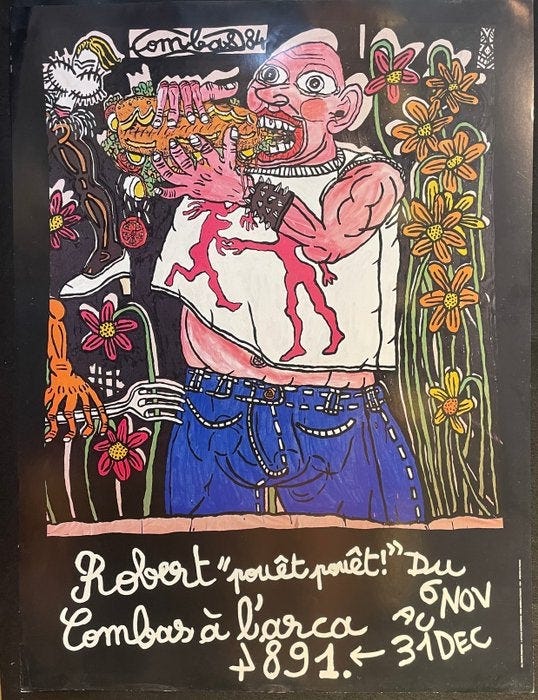 Combas 84
Robert "pouêt pouêt!" Du
6 NOV
Combas à l'arca AU
31 DEC
891. ←